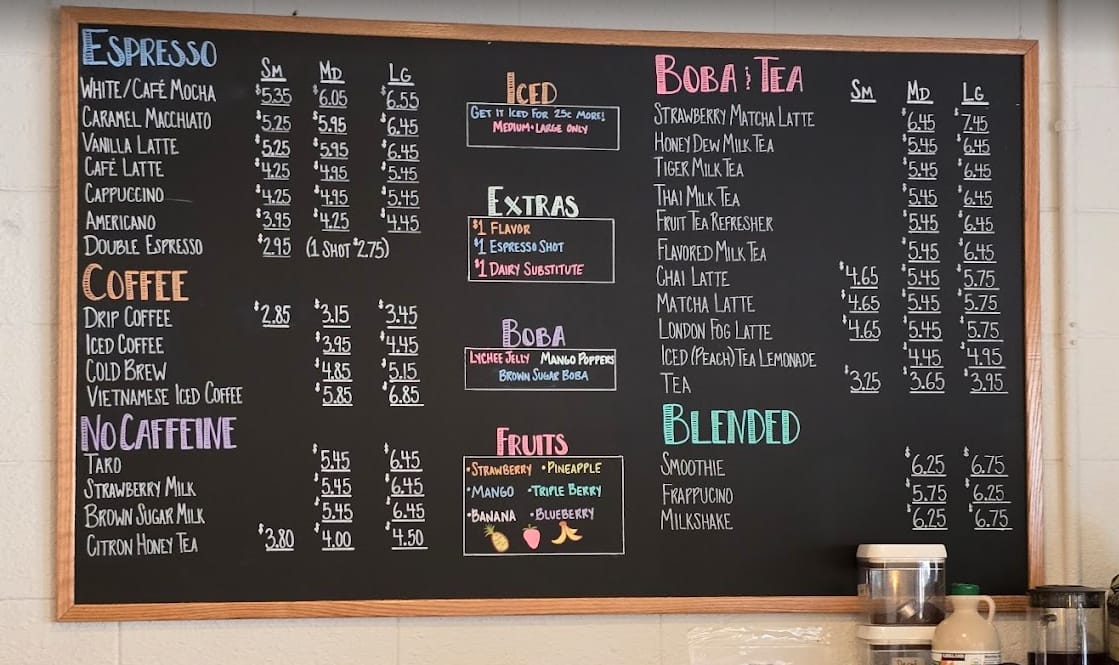 ESPRESSO
SM MD LG
WHITE/CAFÉ MOCHA $5.35 $6.05 $6.55
CARAMEL MACCHIATO $5.25 $5.95 $6.45
VANILLA LATTE $5.25 $5.95 $6.45
CAFÉ LATTE $4.25 $4.95 $5.45
CAPPUCCINO $4.25 $4.95 $5.45
AMERICANO $3.95 $4.25 $4.45
DOUBLE ESPRESSO $2.95 (1 SHOT $2.75)
COFFEE
DRIP COFFEE $2.85 $3.15 $3.45
ICED COFFEE $3.95 $4.45
COLD BREW $4.85 $5.15
VIETNAMESE ICED COFFEE $5.85 $6.85
NO CAFFEINE
TARO $5.45 $6.45
STRAWBERRY MILK $5.45 $6.45
BROWN SUGAR MILK $5.45 $6.45
CITRON HONEY TEA $3.80 $4.00 $4.50
ICED
GET IT ICED FOR 25¢ MORE!
MEDIUM+LARGE ONLY
EXTRAS
$1 FLAVOR
$1 ESPRESSO SHOT
$1 DAIRY SUBSTITUTE
BOBA
LYCHEE JELLY MANGO POPPERS
BROWN SUGAR BOBA
FRUITS
•STRAWBERRY •PINEAPPLE
•MANGO •TRIPLE BERRY
•BANANA •BLUEBERRY
BOBA & TEA
SM MD LG
STRAWBERRY MATCHA LATTE $6.45 $7.45
HONEY DEW MILK TEA $5.45 $6.45
TIGER MILK TEA $5.45 $6.45
THAI MILK TEA $5.45 $6.45
FRUIT TEA REFRESHER $5.45 $6.45
FLAVORED MILK TEA $5.45 $6.45
CHAI LATTE $4.65 $5.45 $5.75
MATCHA LATTE $4.65 $5.45 $5.75
LONDON FOG LATTE $4.65 $5.45 $5.75
ICED (PEACH) TEA LEMONADE $4.45 $4.95
TEA $3.25 $3.65 $3.95
BLENDED
SMOOTHIE $6.25 $6.75
FRAPPUCINO $5.75 $6.25
MILKSHAKE $6.25 $6.75